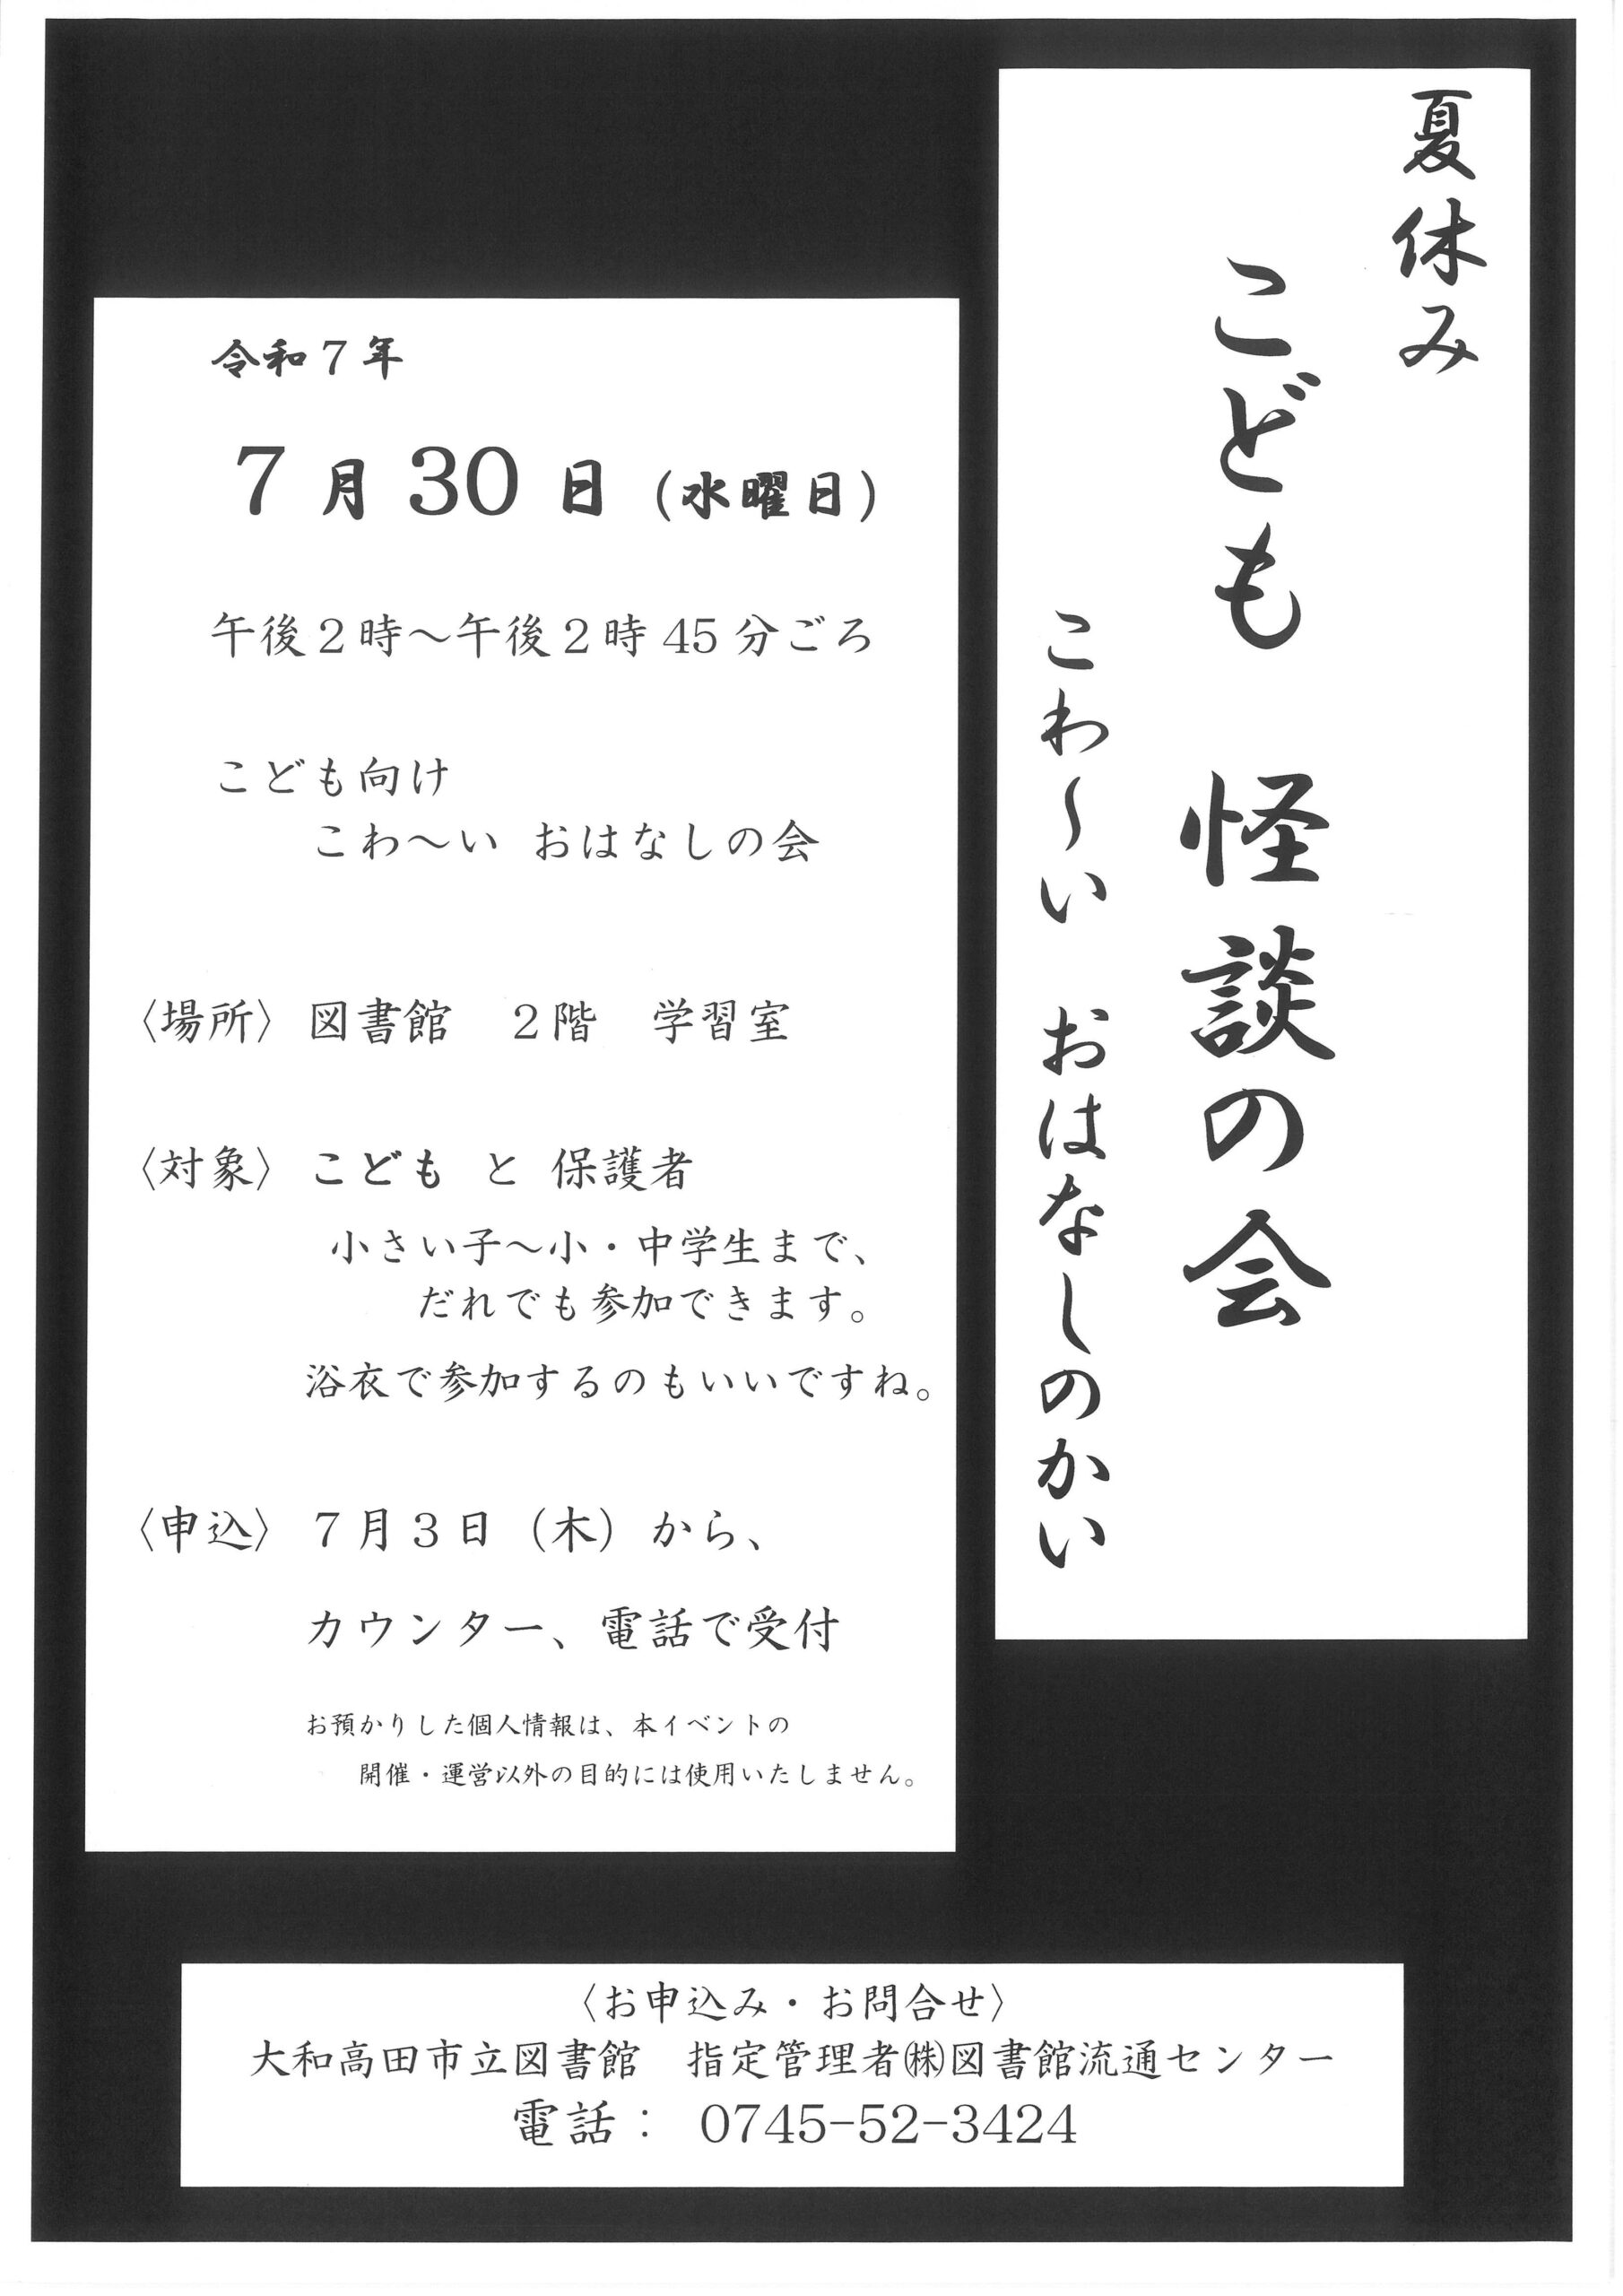 夏休み
こども 怪談の会
こわ～い おはなしのかい
令和7年
7月30日（水曜日）
午後2時～午後2時45分ごろ
こども向け
こわ～い おはなしの会
〈場所〉図書館　2階　学習室
〈対象〉こども と 保護者
小さい子～小・中学生まで、
だれでも参加できます。
浴衣で参加するのもいいですね。
〈申込〉7月3日（木）から、
カウンター、電話で受付
お預かりした個人情報は、本イベントの
開催・運営以外の目的には使用いたしません。
〈お申込み・お問合せ〉
大和高田市立図書館　指定管理者㈱図書館流通センター
電話： 0745-52-3424